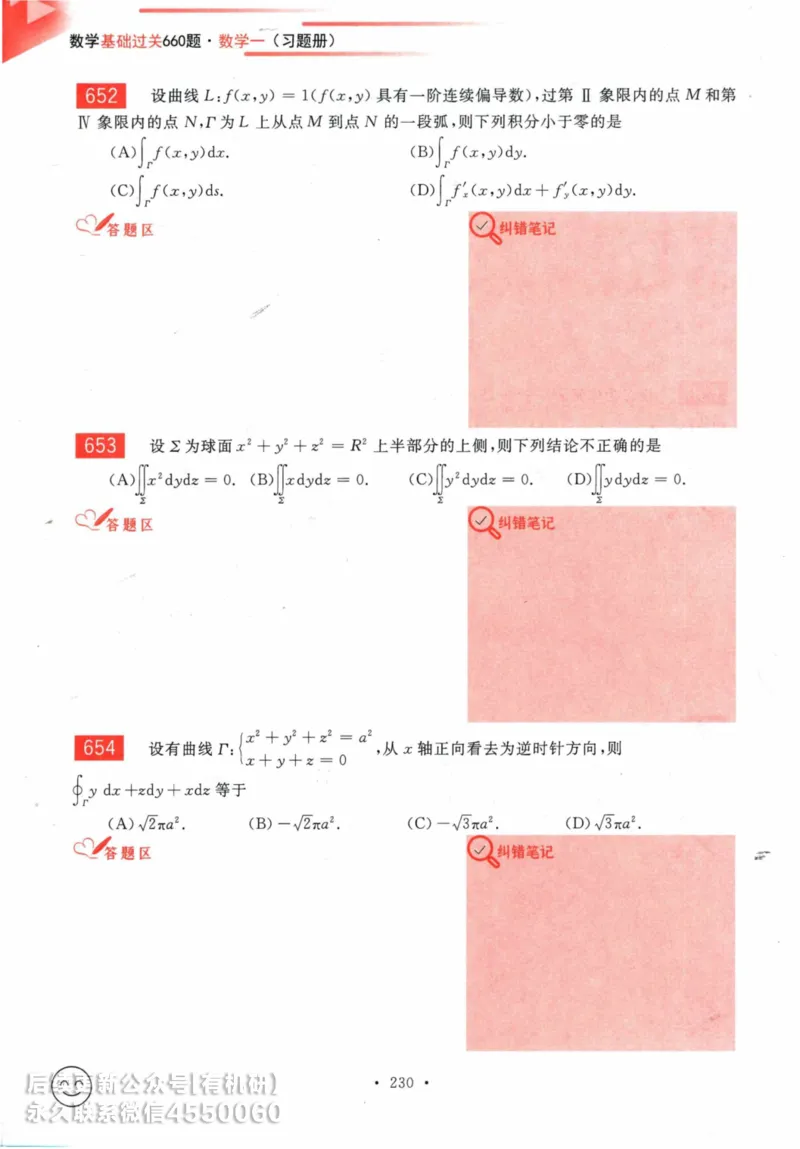 数学基础过关660题·数学一(习题册)
652 设曲线 L:f(x,y) = 1(f(x,y) 具有一阶连续偏导数),过第 Ⅱ 象限内的点 M 和第
Ⅳ 象限内的点 N,Γ 为 L 上从点 M 到点 N 的一段弧,则下列积分小于零的是
(A)∫_Γ f(x,y)dx. (B)∫_Γ f(x,y)dy.
(C)∫_Γ f(x,y)ds. (D)∫_Γ f′_x(x,y)dx + f′_y(x,y)dy.
答题区 纠错笔记
653 设 Σ 为球面 x² + y² + z² = R² 上半部分的上侧,则下列结论不正确的是
(A)∬_Σ x²dydz = 0. (B)∬_Σ xdydz = 0. (C)∬_Σ y²dydz = 0. (D)∬_Σ ydydz = 0.
答题区 纠错笔记
654 设有曲线 Γ:{x² + y² + z² = a²
x + y + z = 0 ,从 x 轴正向看去为逆时针方向,则
∮_Γ y dx + zdy + xdz 等于
(A)√2πa². (B)−√2πa². (C)−√3πa². (D)√3πa².
答题区 纠错笔记
后续更新公众号[有机研]
永久联系微信4550060
· 230 ·